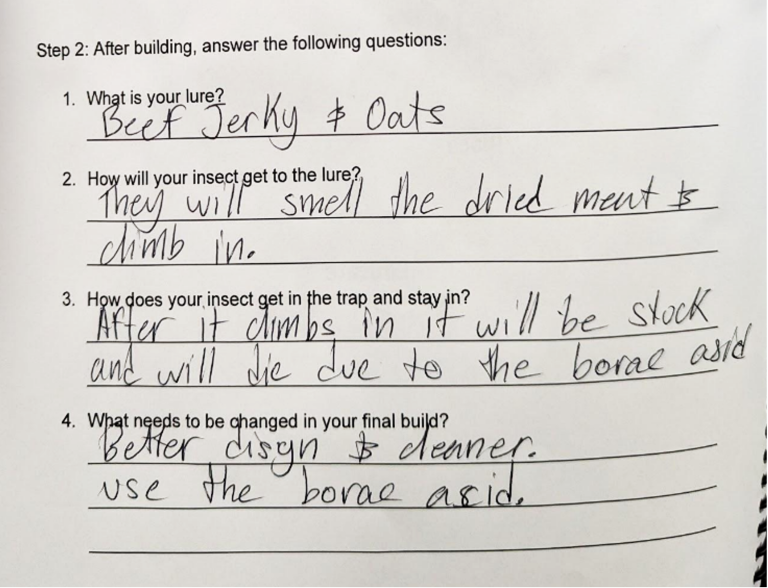 Step 2: After building, answer the following questions:
1. What is your lure?
Beef Jerky & Oats
2. How will your insect get to the lure?
They will smell the dried meat &
climb in.
3. How does your insect get in the trap and stay in?
After it climbs in it will be stock
and will die due to the borac asid
4. What needs to be changed in your final build?
Better disgn & cleaner.
use the borac acid.